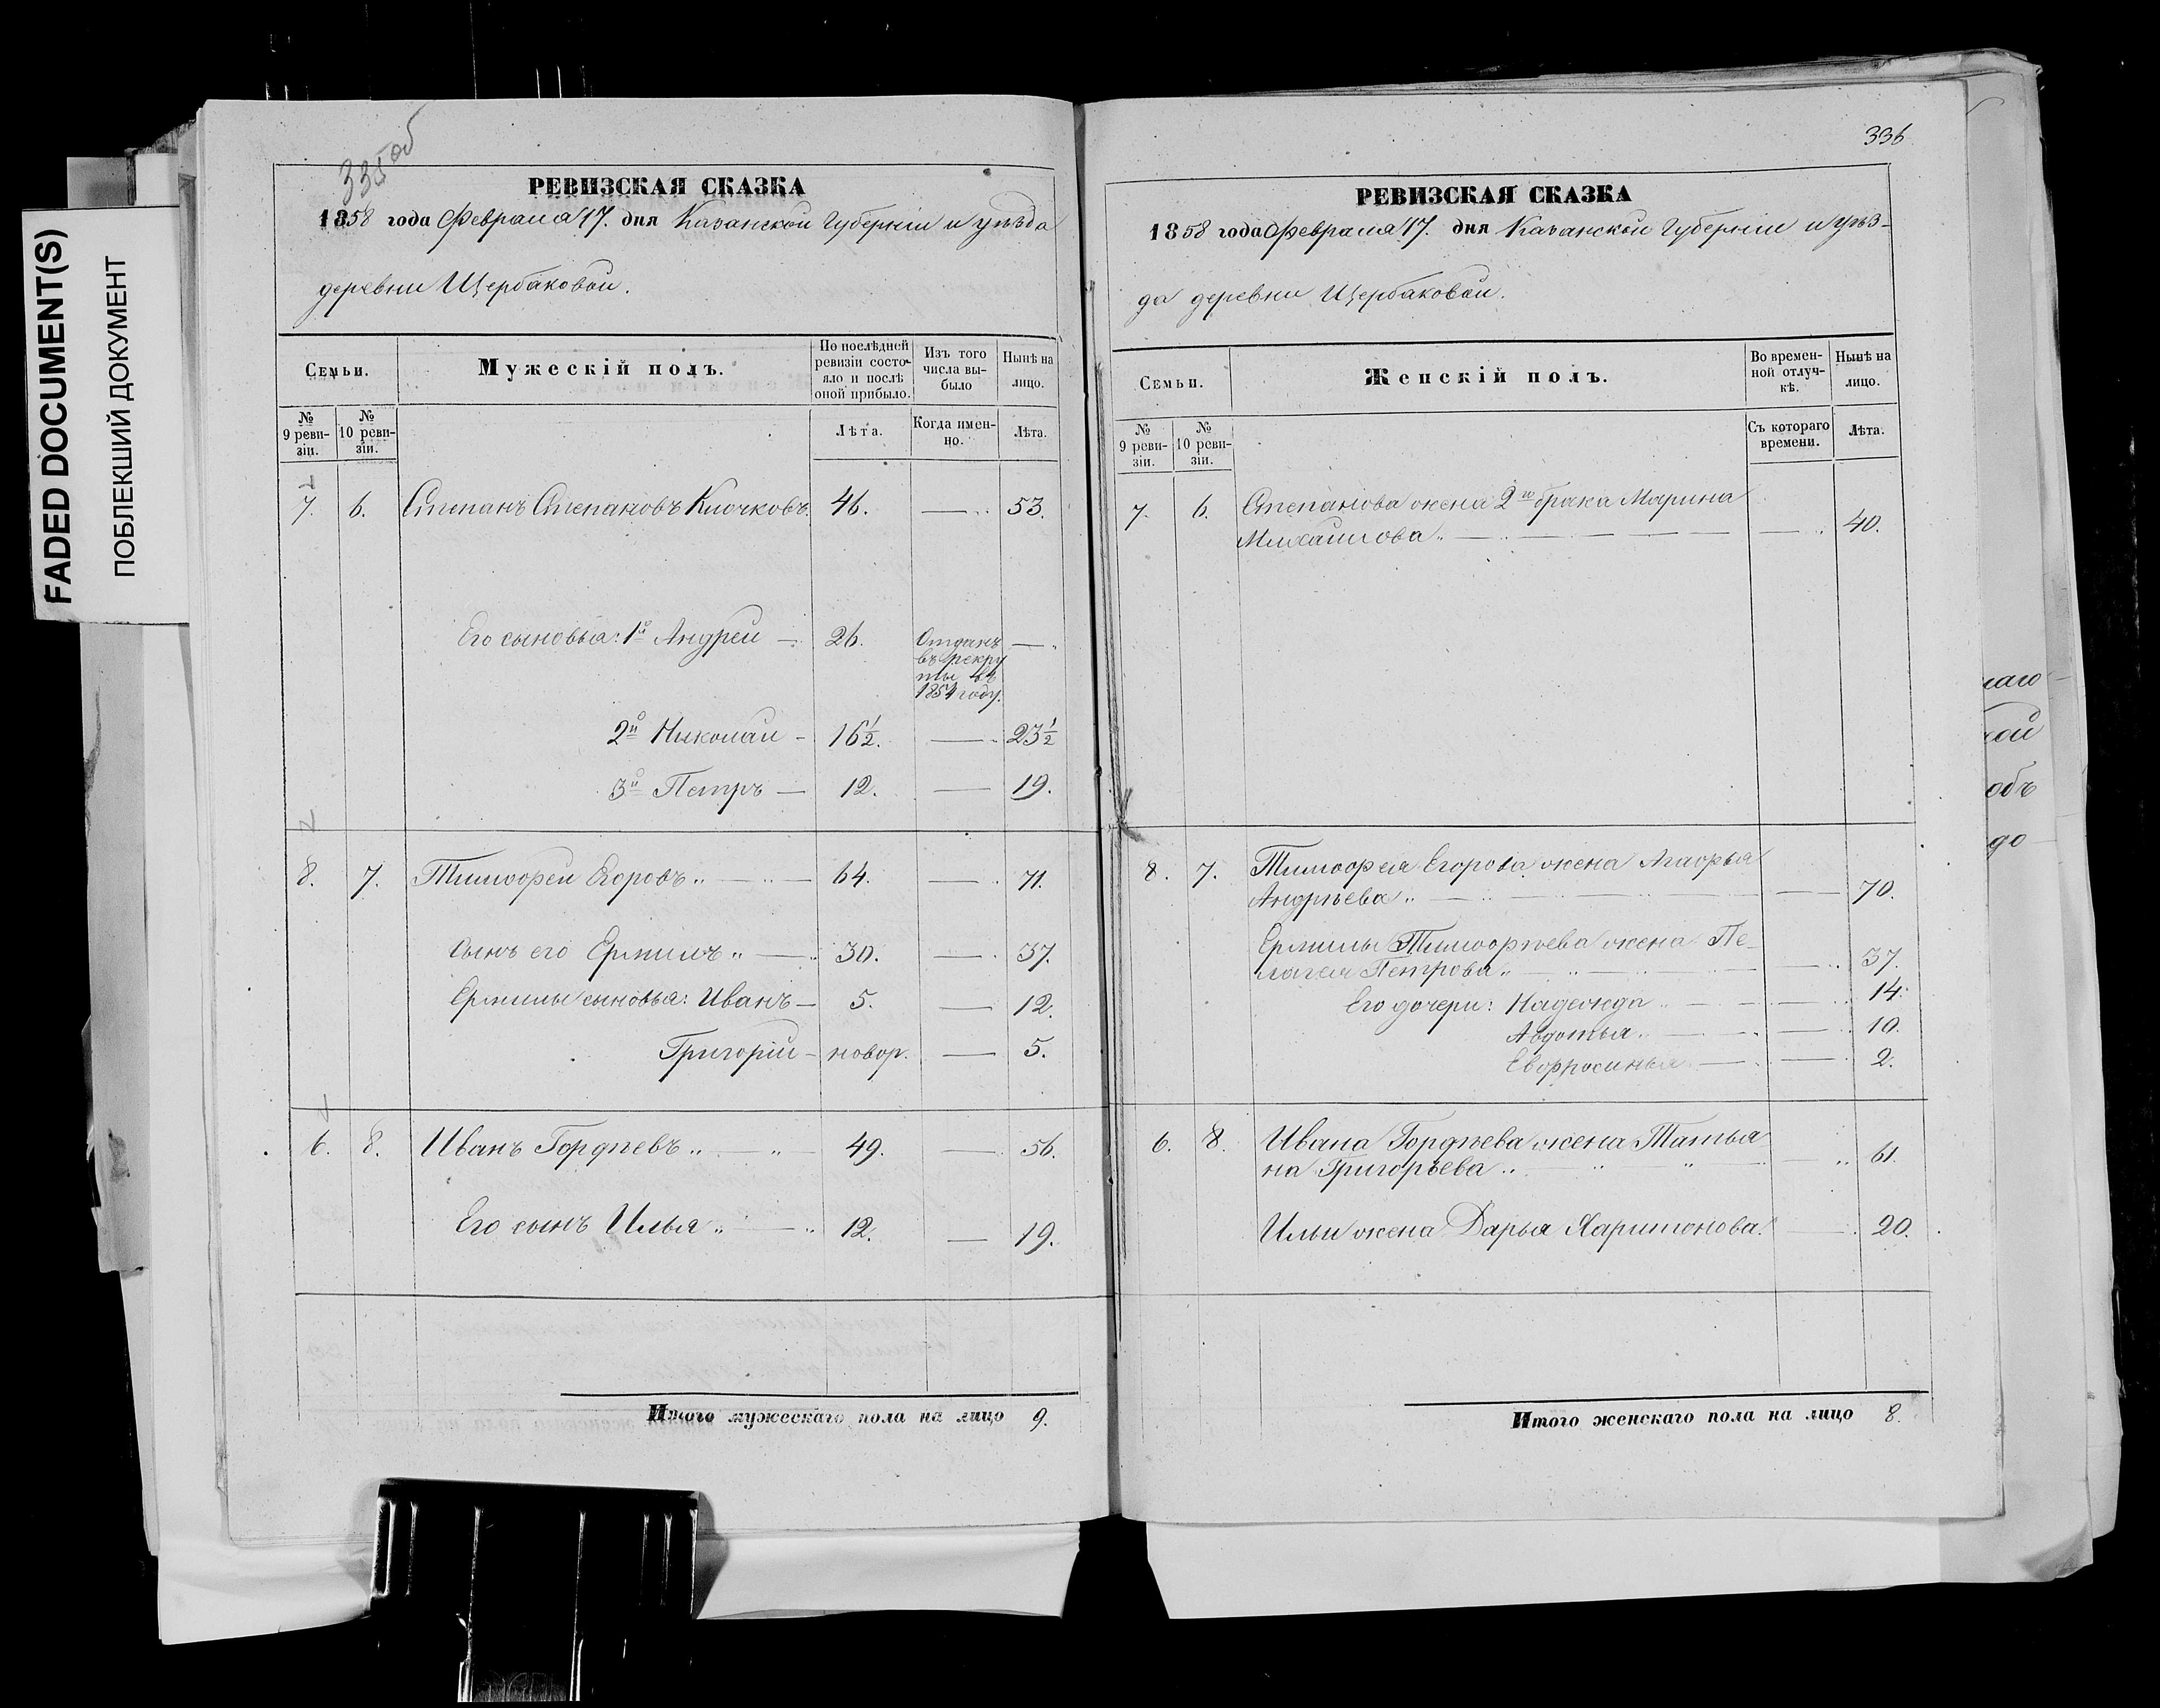 FADED DOCUMENT(S)
ПОБЛЕКШИЙ ДОКУМЕНТ
335 об
РЕВИЗСКАЯ СКАЗКА
1858 года Февраля 17. дня Казанской Губерніи и уѣзда
деревни Щербаковой.
Семьи.
Мужескій полъ.
По послѣдней ревизіи состояло и послѣ оной прибыло.
Изъ того числа выбыло
Нынѣ на лицо.
№ 9 ревизіи.
№ 10 ревизіи.
Лѣта.
Когда именно.
Лѣта.
7. 6. Степанъ Степановъ Клочковъ. 46. — 53.
Его сыновья: 1й Андрей — 26. Отданъ —
въ рекру
ты въ
1854 году.
2й Николай — 16½. — 23½
3й Петръ — 12. — 19.
8. 7. Тимофей Егоровъ „ — 64. — 71.
Сынъ его Ермилъ „ — 30. — 37.
Ермилы сыновья: Иванъ — 5. — 12.
Григорій — новор. — 5.
6. 8. Иванъ Гордѣевъ „ — „ — 49. — 56.
Его сынъ Илья „ — „ 12. — 19.
Итого мужескаго пола на лицо 9.
336
РЕВИЗСКАЯ СКАЗКА
1858 года Февраля 17. дня Казанской Губерніи и уѣз-
да деревни Щербаковой.
Семьи.
Женскій полъ.
Во временной отлучкѣ.
Нынѣ на лицо.
№ 9 ревизіи.
№ 10 ревизіи.
Съ котораго времени.
Лѣта.
7. 6. Степанова жена 2го брака Марина
Михайлова „ — 40.
8. 7. Тимофея Егорова жена Агафья
Андрѣева „ — 70.
Ермилы Тимофѣева жена Пе-
лагея Петрова „ — 37.
Его дочери: Надежда „ — 14.
Авдотья „ — 10.
Евфросинья — 2.
6. 8. Ивана Гордѣева жена Татья
на Григорьева „ — 61.
Ильи жена Дарья Харитонова. — 20.
Итого женскаго пола на лицо 8.
лаго
кой
объ
до